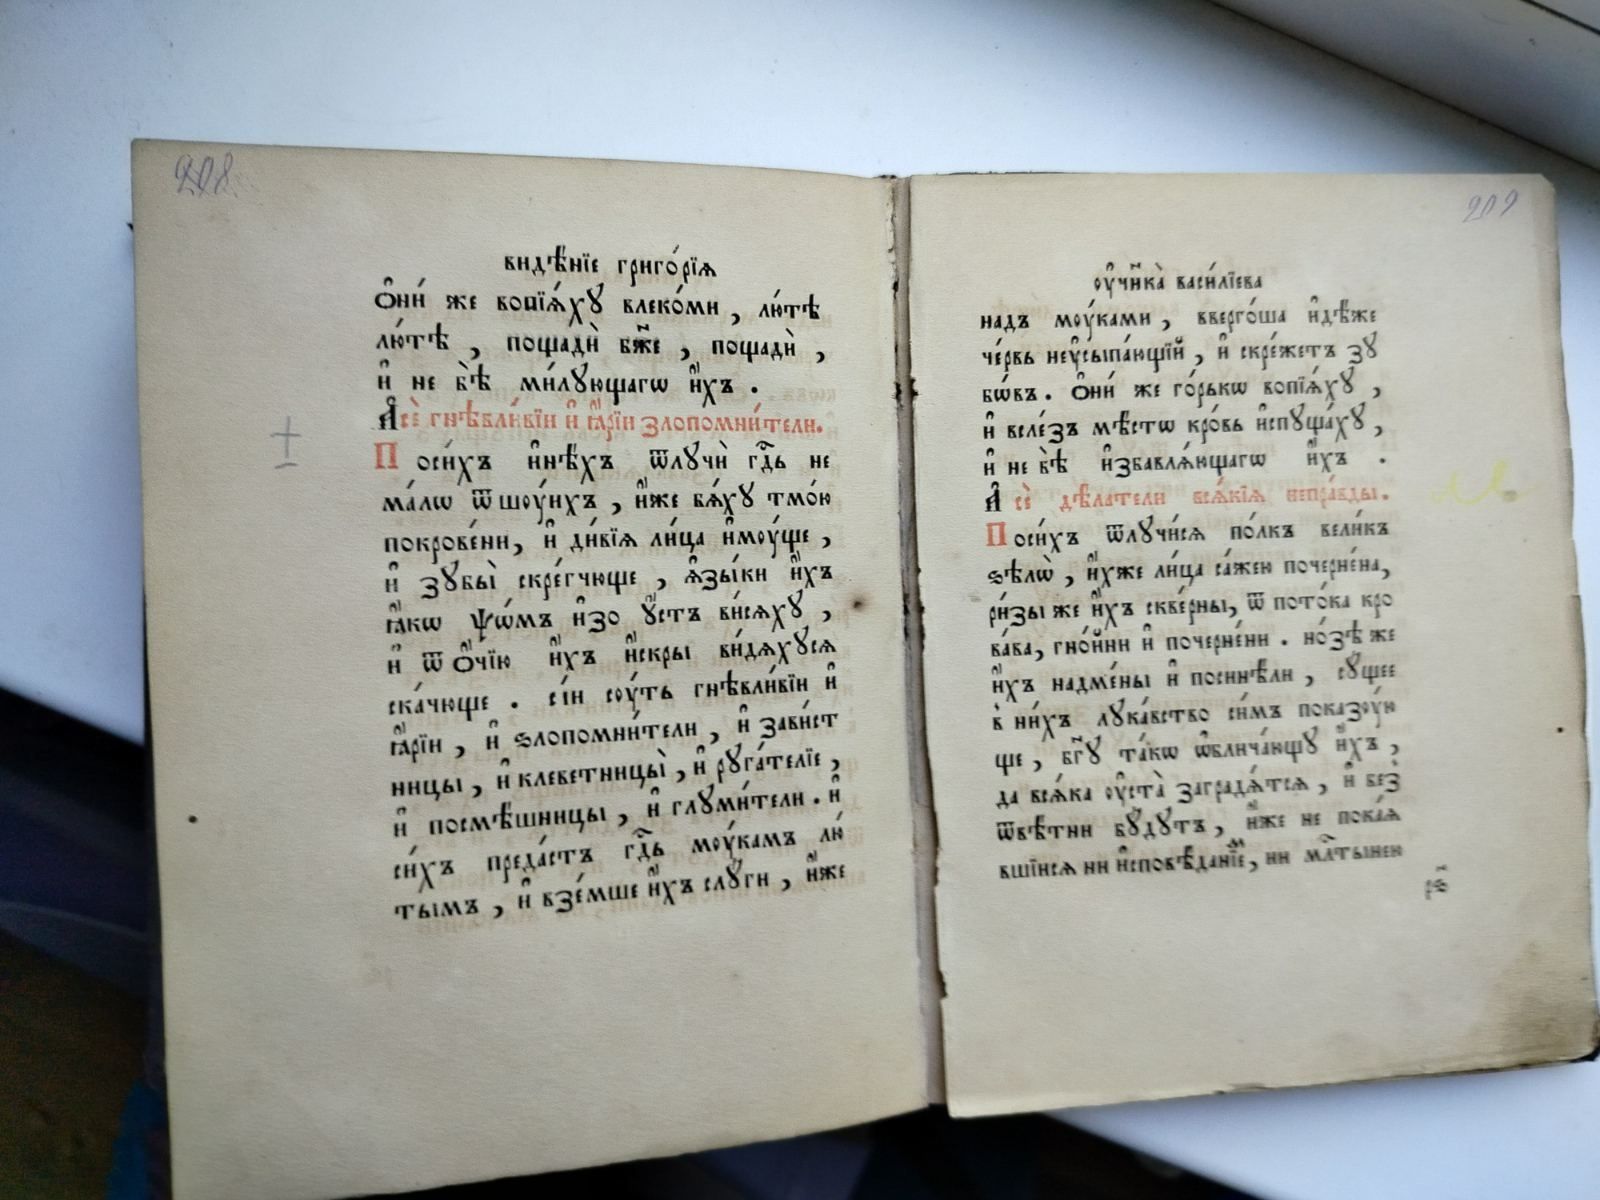 208
видѣ́нїе григо́рїѧ
Ѻ҆ни́ же вопїѧ́хꙋ влеко́ми , лю́тѣ
лю́тѣ , пощадѝ бж҃е , пощадѝ ,
и҆ не бѣ̀ ми́лꙋющагѡ и҆́хъ .
А҆ сѐ гнѣвли́вїи и҆ ꙗ҆́рїи злопомни́тели.
По си́хъ и҆нѣ́хъ ѿлꙋчѝ гдⷭ҇ь не
ма́лѡ ѿ шоу́ихъ , и҆́же бѧ́хꙋ тмо́ю
покрове́ни, и҆ ди́вїѧ ли́ца и҆моу́ще ,
и҆ зꙋбы̀ скре́гчюще , ѧ҆зы́ки и҆́хъ
ꙗ҆́кѡ ѱѡ́мъ и҆зо ꙋ҆́стъ ви́сѧхꙋ ,
и҆ ѿ ѻ҆́чїю и҆́хъ и҆́скры ви́дѧхꙋсѧ
ска́чюще . сі́и соу́ть гнѣвли́вїи и҆
ꙗ҆́рїи , и҆ ѕлопомни́тели , и҆ зави́ст
ницы, и҆ клеветницы̀ , и҆ рꙋга́телїе ,
и҆ посмѣ́шницы , и҆ глꙋми́тели . и҆
си́хъ преда́стъ гдⷭ҇ь моу́камъ лю́
тымъ , и҆ взе́мше и҆́хъ слꙋги , и҆́же
209
оу҆чн҃ика̀ васи́лїева
надъ моу́ками , вверго́ша и҆дѣ́же
че́рвь неꙋ҆сыпа́ющїй , и҆ скре́жетъ зꙋ
бѡ́въ. Ѻ҆ни́ же го́рькѡ вопїѧ́хꙋ ,
и҆ вслѐзъ мѣ́стѡ кро́вь и҆спꙋща́хꙋ ,
и҆ не бѣ̀ и҆збавлѧ́ющагѡ и҆́хъ .
А҆ сѐ дѣ́латели всѧ́кїѧ непра́вды.
По си́хъ ѿлꙋчи́сѧ по́лкъ вели́къ
ѕѣлѡ̀ , и҆́хже ли́ца са́жею почерне́на,
ри́зы же и҆́хъ скве́рны, ѿ пото́ка кро
ва́ва, гно́йни и҆ почерне́ни . но́зѣ же
и҆́хъ надме́ны и҆ посинѣ́ли , сꙋ́щее
в̾ ни́хъ лꙋка́вство си́мъ показоу́ю
ще , бг҃ꙋ та́кѡ ѡ҆блича́ющꙋ и҆́хъ ,
да всѧ́ка оу҆ста̀ заградѧ́тсѧ , и҆ без̾
ѿвѣ́тни бꙋ́дꙋтъ , и҆́же не пока́ѧ
вшїисѧ ни и҆сповѣ́данїеⷨ, ни млⷭ҇тынею